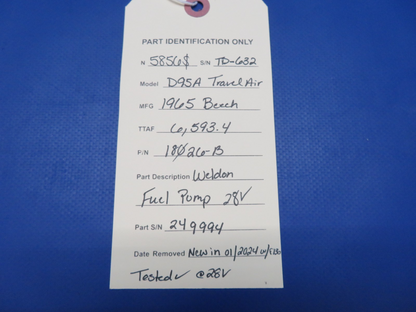 PART IDENTIFICATION ONLY
N 5856$ S/N TD-632
Model D95A TravelAir
MFG 1965 Beech
TTAF 6,593.4
P/N 18026-B
Part Description Weldon
Fuel Pump 28V
Part S/N 249994
Date Removed New in 01/2024 w/
Tested✓ @28V